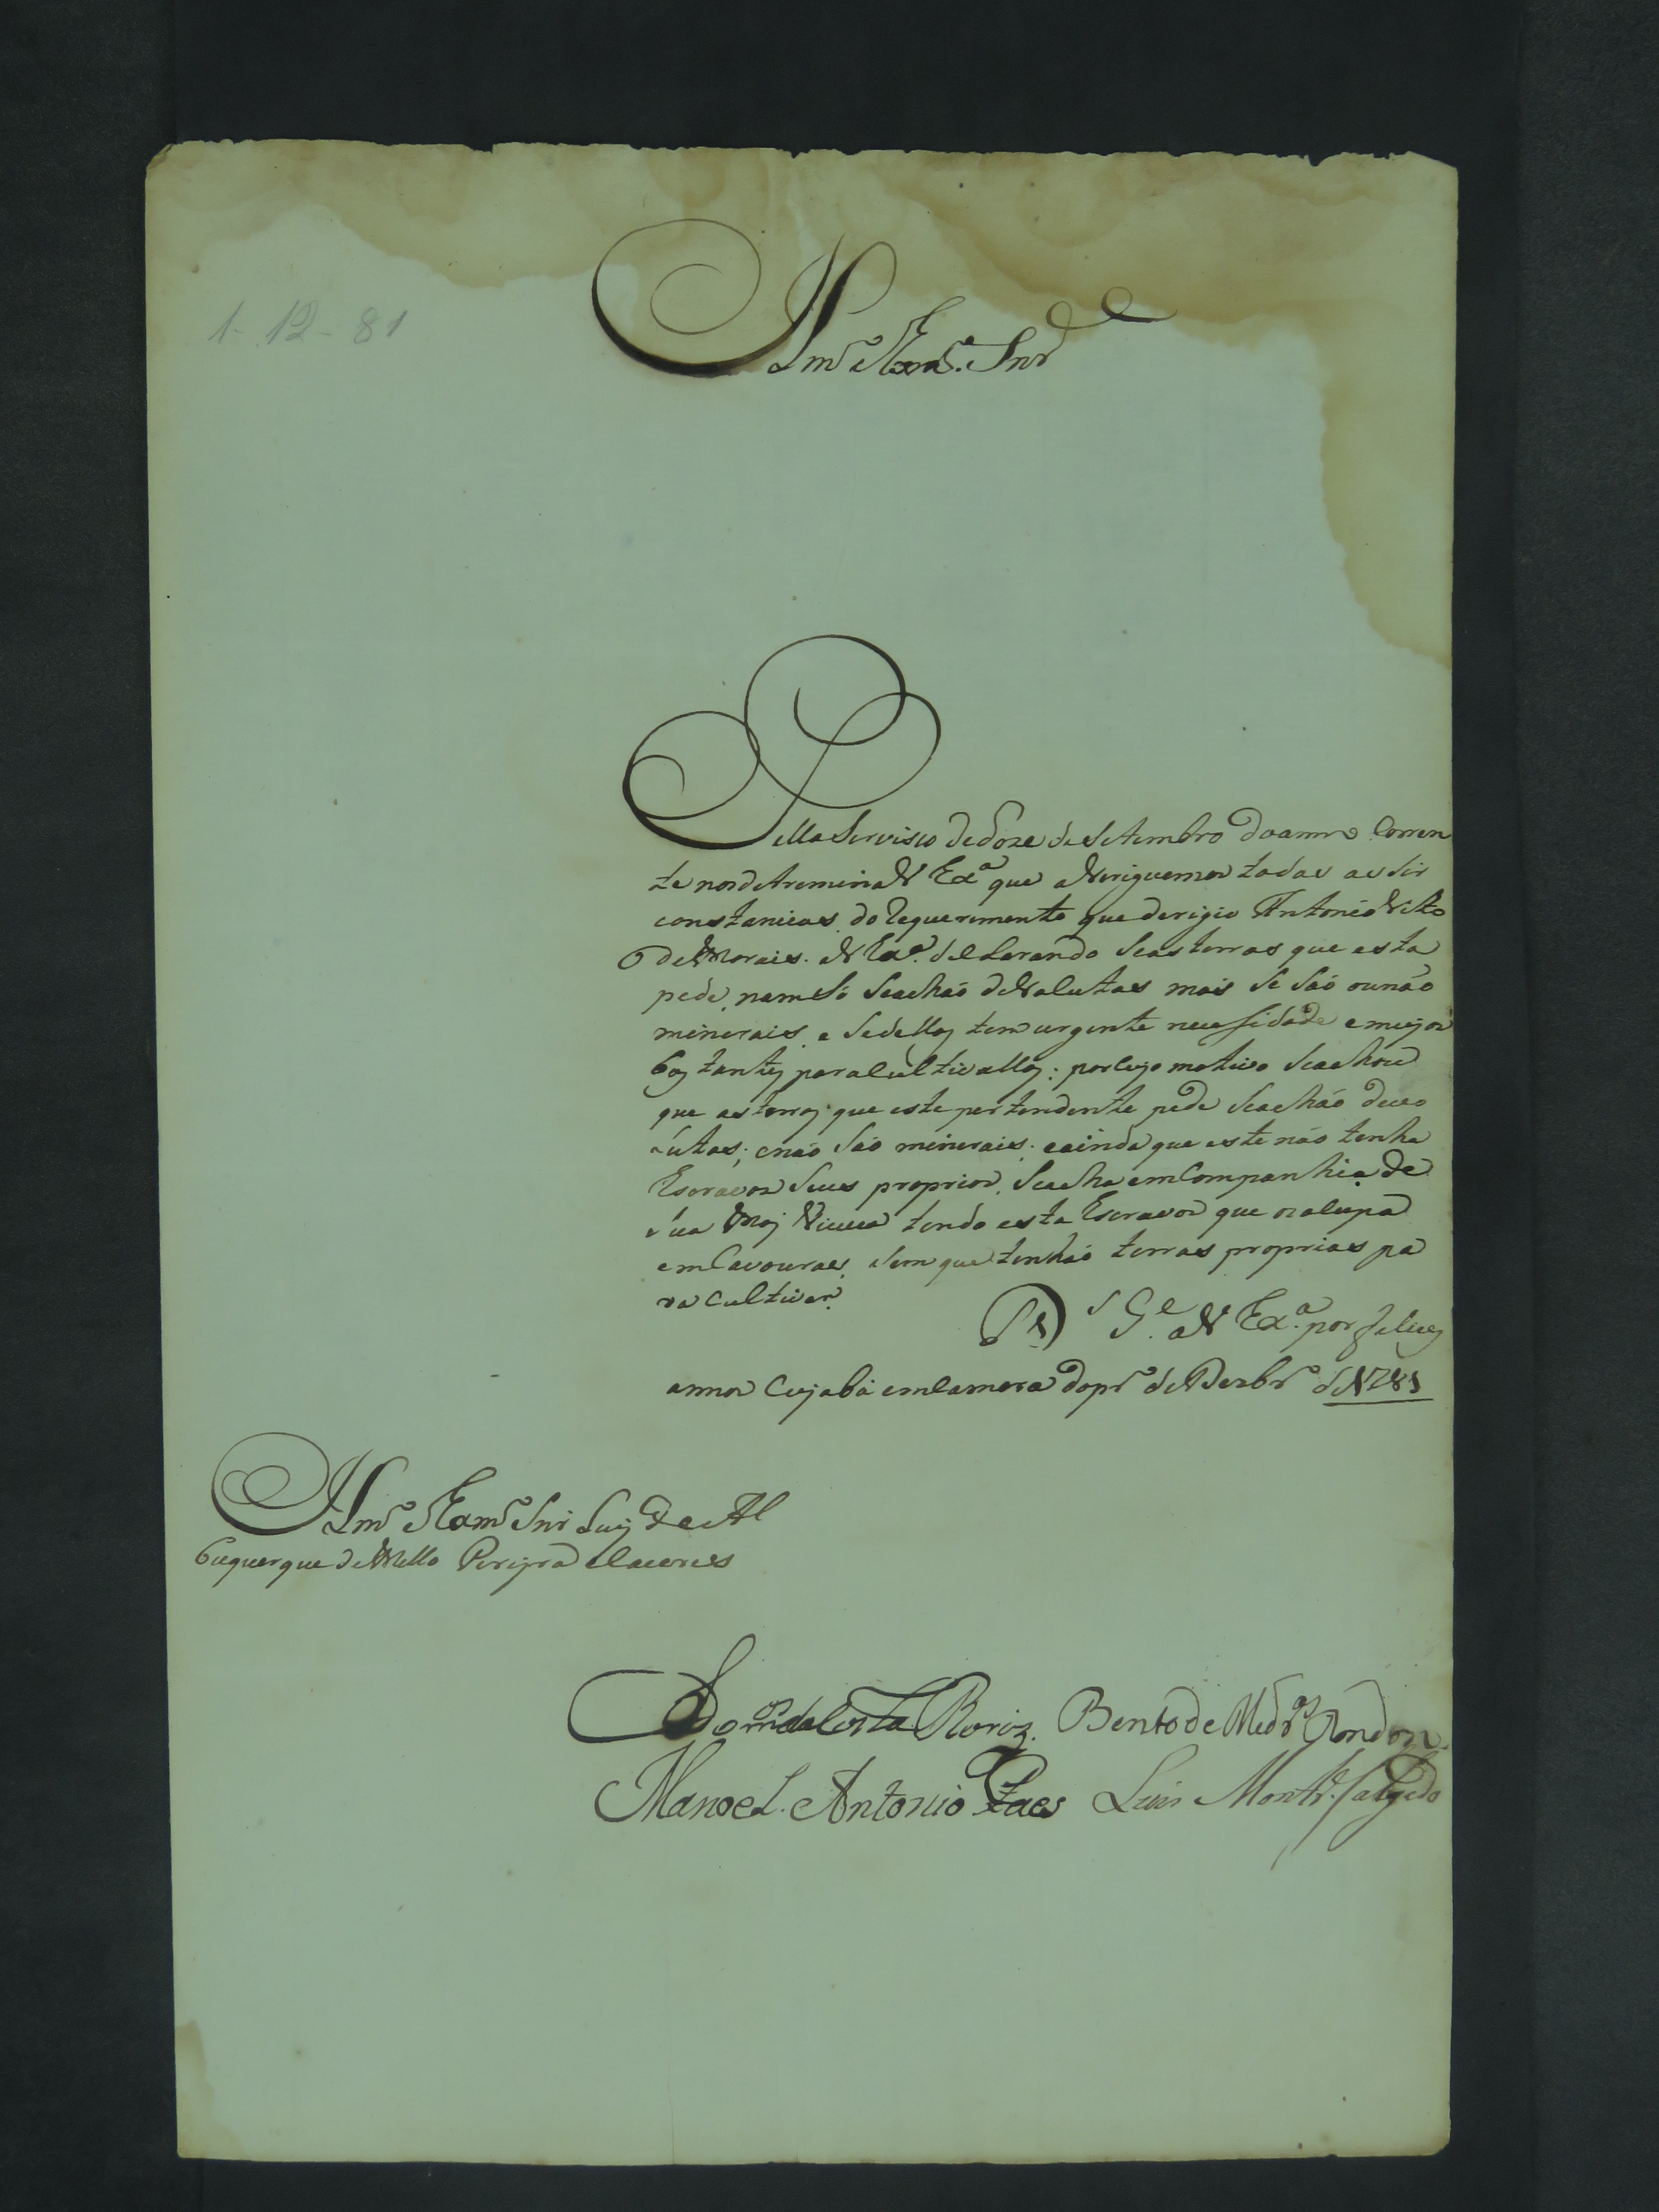 1-12-81
Illmo. e Exmo. Snr.
Pella Servisco de doze de Setembro do anno Corren
te nos detremina V Exa. que averiguemos todas as sir
constancias do Requerimento que derigio Antonio Vito
de Morais. a V Exa. declarando se as terras que esta
pede, nam só se achaõ devalutas mais se saõ ou naõ
minerais, e se dellas tem urgente necessidade e meyos
bastantes para cultivallas: por cujo motivo se achou
que as terras que este pertendente pede se achaõ devo
lutas; e naõ saõ minerais; e ainda que este naõ tenha
Escravos seus proprios, se acha em Companhia de
sua May Viuva tendo esta Escravos que os alupa
em Lavouras, sem que tenhaõ terras proprias pa
ra Cultivar.
Ds. Ge. a V Exa. por felices
annos Cuyabá em Camera do pro. de Dezbro. de 1781
Illmo. e Exmo. Snr Luis de Al
buquerque de Mello Pereyra e Caceres
Domos. da Costa Roriz. Bento de Medros. Rondon.
Manoel. Antonio Paes Luis Montro. Salgado